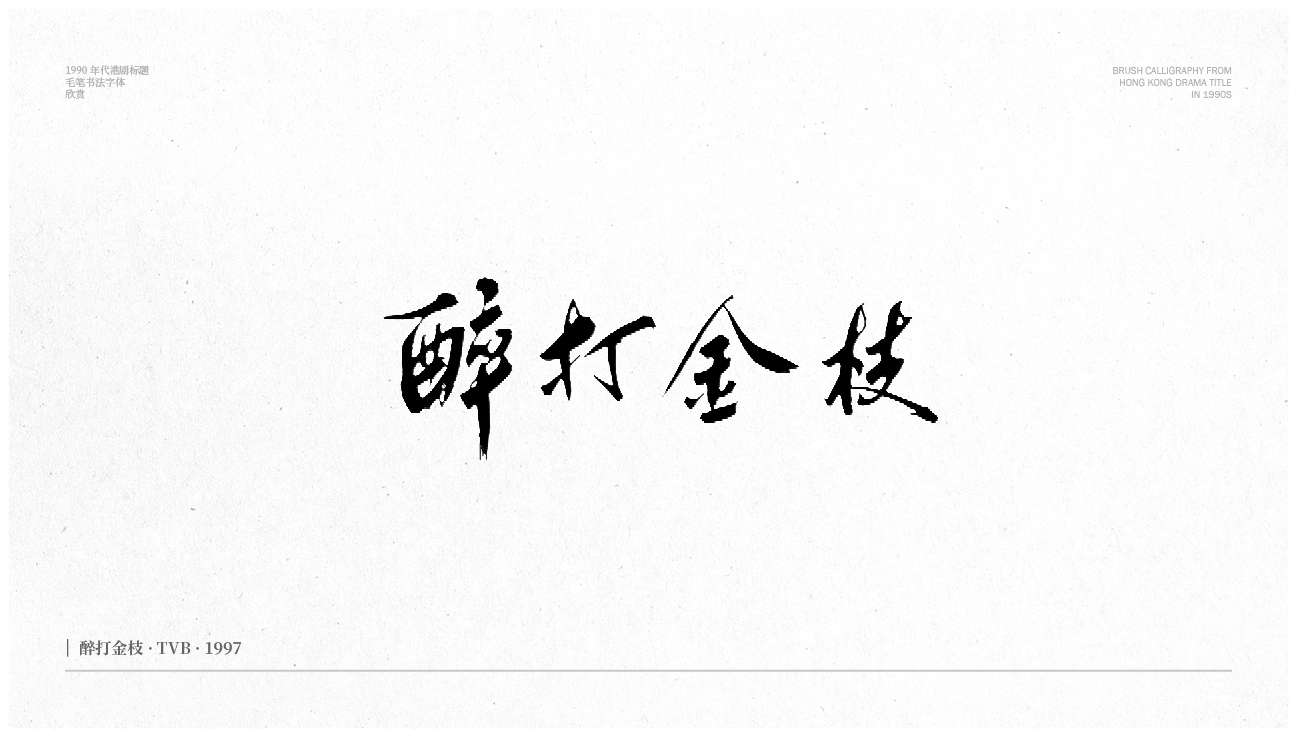 1990 年代港剧标题
毛笔书法字体
欣赏
BRUSH CALLIGRAPHY FROM
HONG KONG DRAMA TITLE
IN 1990S
醉打金枝
醉打金枝 · TVB · 1997